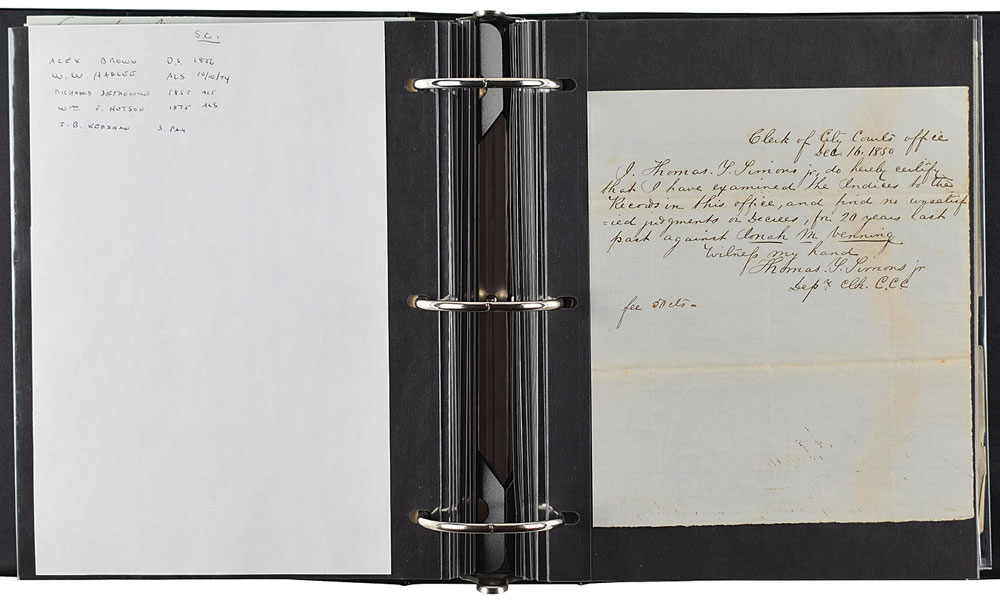 S.C.
ALEX BROWN D.S. 1836
W.W. HARLEE ALS 10/10/74
RICHARD 1853 ALS
Wm F. HUTSON 1875 ALS
J.B. KERSHAW S. PAN
Clerk of City Courts office
Dec. 16. 1850
I. Thomas. Y. Simons jr, do hereby certify
that I have examined the Indices to the
Records in this office, and find no unsatisf
=ied judgments or Decrees, for 20 years last
past against Jonah M Venning
Witness my hand
Thomas. Y. Simons jr
Depy Clk. C.C.C
fee 50 cts =